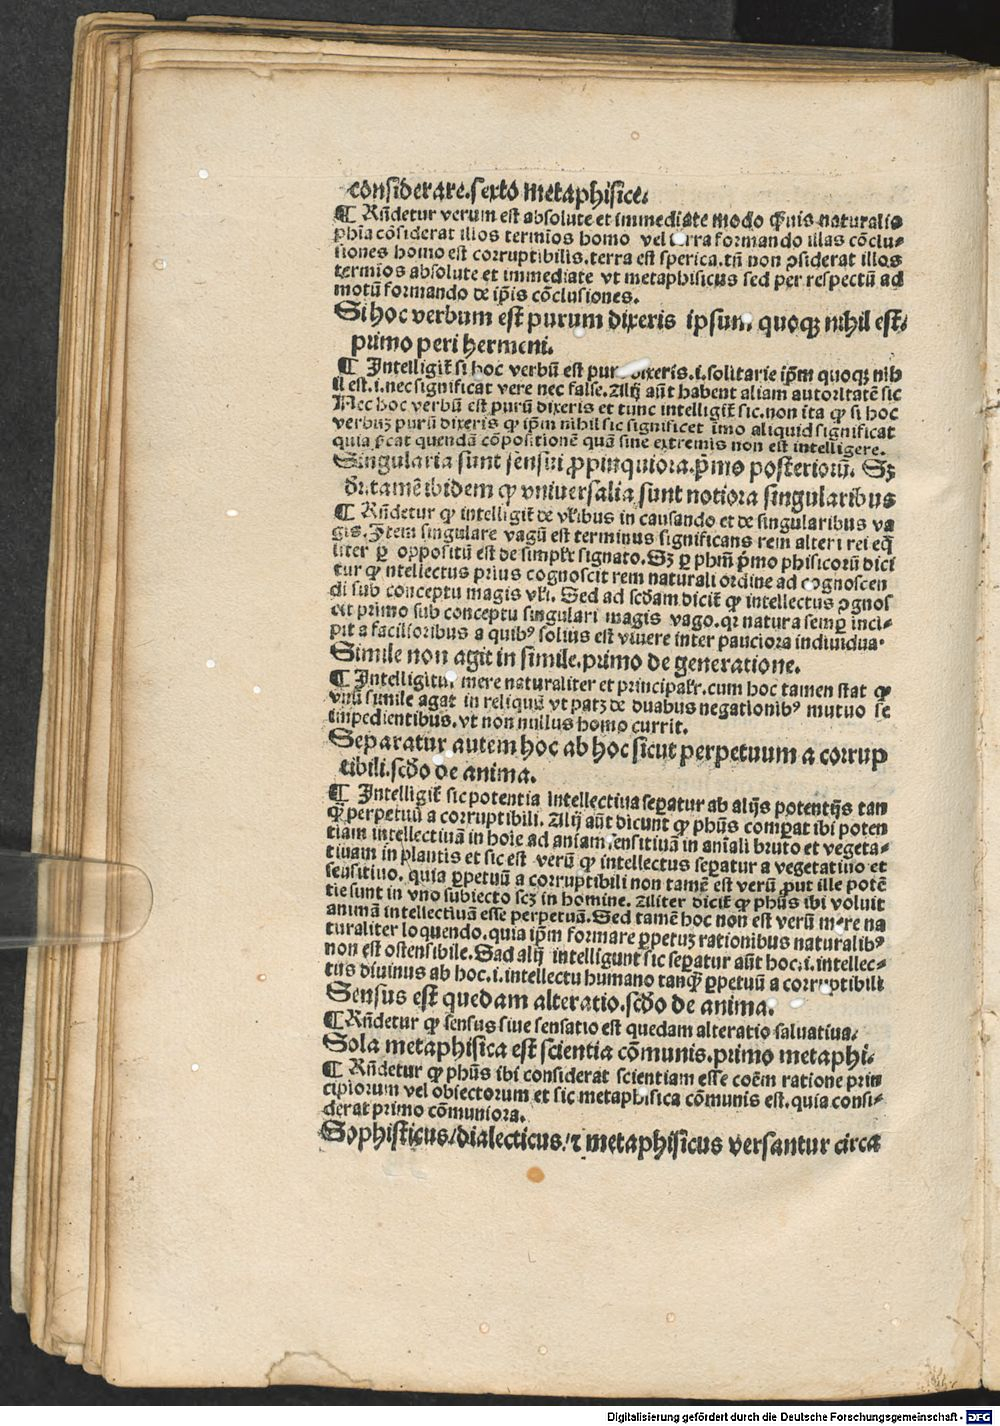 considerare.sexto metaphisice.
¶ Rñdetur verum est absolute et immediate modo q̃uis naturalis
phia cõsiderat illos termiōs homo vel terra formando illas cõclu-
siones homo est corruptibilis.terra est sperica.tñ non ꝯsiderat illos
termiōs absolute et immediate vt metaphisicus sed per respectū ad
motū formando de ip̄is cōclusiones.
Si hoc verbum est purum dixeris ipsum quoqꝫ nihil est.
primo peri hermeni.
¶ Intelligit̄ si hoc verbū est pur dixeris.i.solitarie ip̄m quoqꝫ nih
il est.i.nec significat vere nec false.Alij aūt habent aliam autoritatē sic
Nec hoc verbū est purū dixeris et tunc intelligit̄ sic.non ita ꝙ si hoc
verbuꝫ purū dixeris ꝙ ip̄m nihil sic significet imo aliquid significat
quia ſ̄cat quendā cōpositionē quā sine extremis non est intelligere.
Singularia sunt sensui ꝓpinquiora.p̄mo posteriorū. Sꝫ
dr̄.tamē ibidem ꝙ vniuersalia sunt notiora singularibus
¶ Rñdetur ꝙ intelligit̄ de vl̄ibus in causando et de singularibus va
gis.Item singulare vagū est terminus significans rem alteri rei eq̄
liter ꝑ oppositū est de simplr̄ signato.Sꝫ ꝑ phm̄ p̄mo phisicorū dici
tur ꝙ ntellectus prius cognoscit rem naturali ordine ad cognoscen
di sub conceptu magis vl̄i. Sed ad scd̄am dicit̄ ꝙ intellectus ꝯgnos
cit primo sub conceptu singulari magis vago.qꝛ natura semꝑ inci-
pit a facilioribus a quibꝰ solius est viuere inter pauciora indiuidua.
Simile non agit in simile.primo de generatione.
¶ Intelligitur mere naturaliter et principalr̄.cum hoc tamen stat ꝙ
vnū simile agat in reliquū vt patꝫ de duabus negationibꝰ mutuo se
impedientibus.vt non nullus homo currit.
Separatur autem hoc ab hoc sicut perpetuum a corrup
tibili.scd̄o de anima.
¶ Intelligit̄ sic potentia intellectiua seꝑatur ab alijs potentijs tan
q̄ꝫ perpetuū a corruptibili. Alij aūt dicunt ꝙ phūs comꝑat ibi poten
tiam intellectiuā in hoīe ad aniam sensitiuā in aniali bruto et vegeta-
tiuam in plantis et sic est verū ꝙ intellectus seꝑatur a vegetatiuo et
sensitiuo. quia ꝑpetuū a corruptibili non tamē est verū ꝓut ille potē
tie sunt in vno subiecto scꝫ in homine. Aliter dicit̄ ꝙ phūs ibi voluit
animā intellectiuam esse perpetuā.Sed tamē hoc non est verū mere na
turaliter loquendo.quia ip̄m formare ꝑpetuꝫ rationibus naturalibꝰ
non est ostensibile.Sad alij intelligunt sic seꝑatur aūt hoc.i.intellec-
tus diuinus ab hoc.i.intellectu humano tanq̄ꝫ ꝑpetuū a corruptibili
Sensus est quedam alteratio.scd̄o de anima.
¶ Rñdetur ꝙ sensus siue sensatio est quedam alteratio saluatiua.
Sola metaphisica est scientia cōmunis.primo metaphi.
¶ Rñdetur ꝙ phūs ibi considerat scientiam esse coēm ratione prin
cipiorum vel obiectorum et sic metaphisica cōmunis est.quia consi-
derat primo cōmuniora.
Sophisticus/dialecticus/⁊ metaphisicus versantur circa
Digitalisierung gefördert durch die Deutsche Forschungsgemeinschaft - DFG